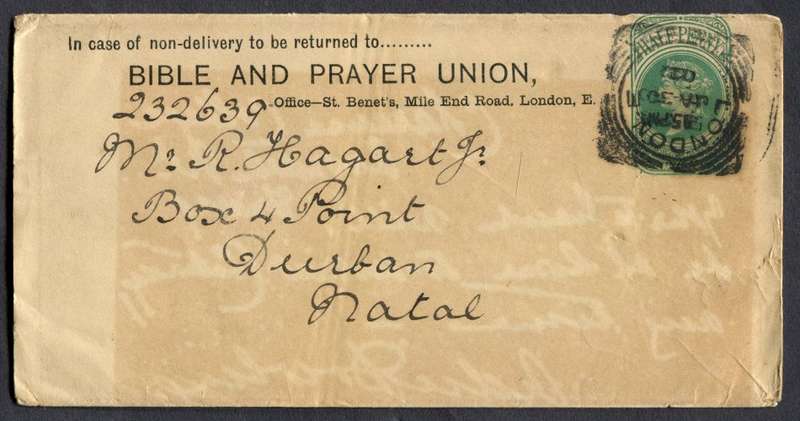 In case of non-delivery to be returned to.........
BIBLE AND PRAYER UNION,
232639 Office—St. Benet's, Mile End Road, London, E.
Mr. R. Hagart Jr.
Box 4 Point
Durban
Natal
HALFPENNY
LONDON